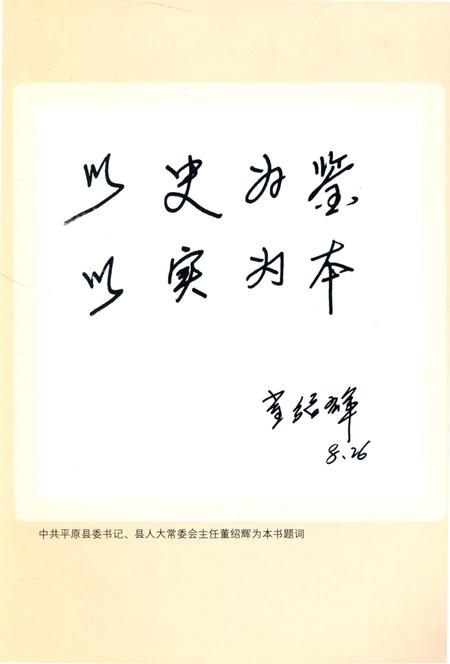 以史为鉴
以实为本
董绍辉
8.26
中共平原县委书记、县人大常委会主任董绍辉为本书题词